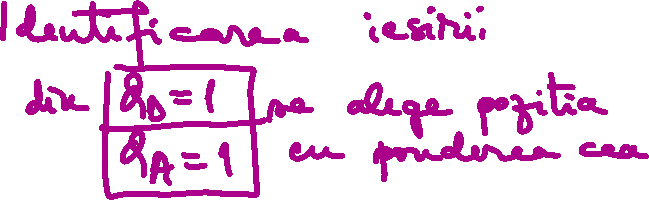 Identificarea iesirii
din Q_D = 1 se alege pozitia
Q_A = 1 cu ponderea cea